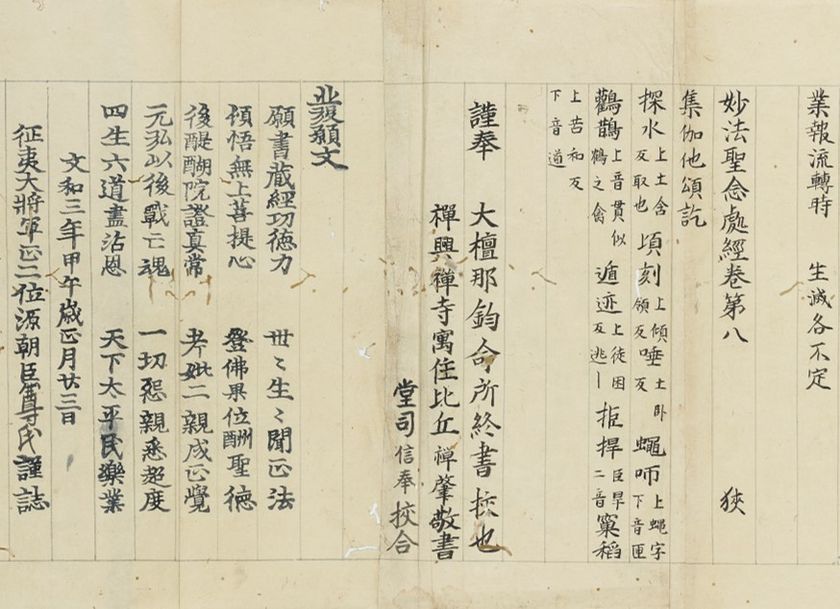 業報流轉時 生滅各不定
妙法聖念處經卷第八 狹
集伽他頌訖
探水 上土含反取也 頃刻 上傾領反 唾 土卧反 蠅咂 上蠅字下音匣
鸛鵲 上音貫似鶴之禽 遁迹 上徒困反逃丨 拒捍 臣旱二音 窠稻
上苦和反下音道
謹奉 大檀那鈞命所終書挍也
禪興禪寺寓住比丘禪肇敬書
堂司信奉挍合
發願文
願書蔵經功徳力 丗〻生〻聞正法
頓悟無上菩提心 登佛果位酬聖徳
後醍醐院證真常 考妣二親成正覺
元弘以後戰亡魂 一切怨親悉超度
四生六道盡沾恩 天下太平民樂業
文和三年甲午歳正月廿三日
征夷大將軍正二位源朝臣尊氏謹誌